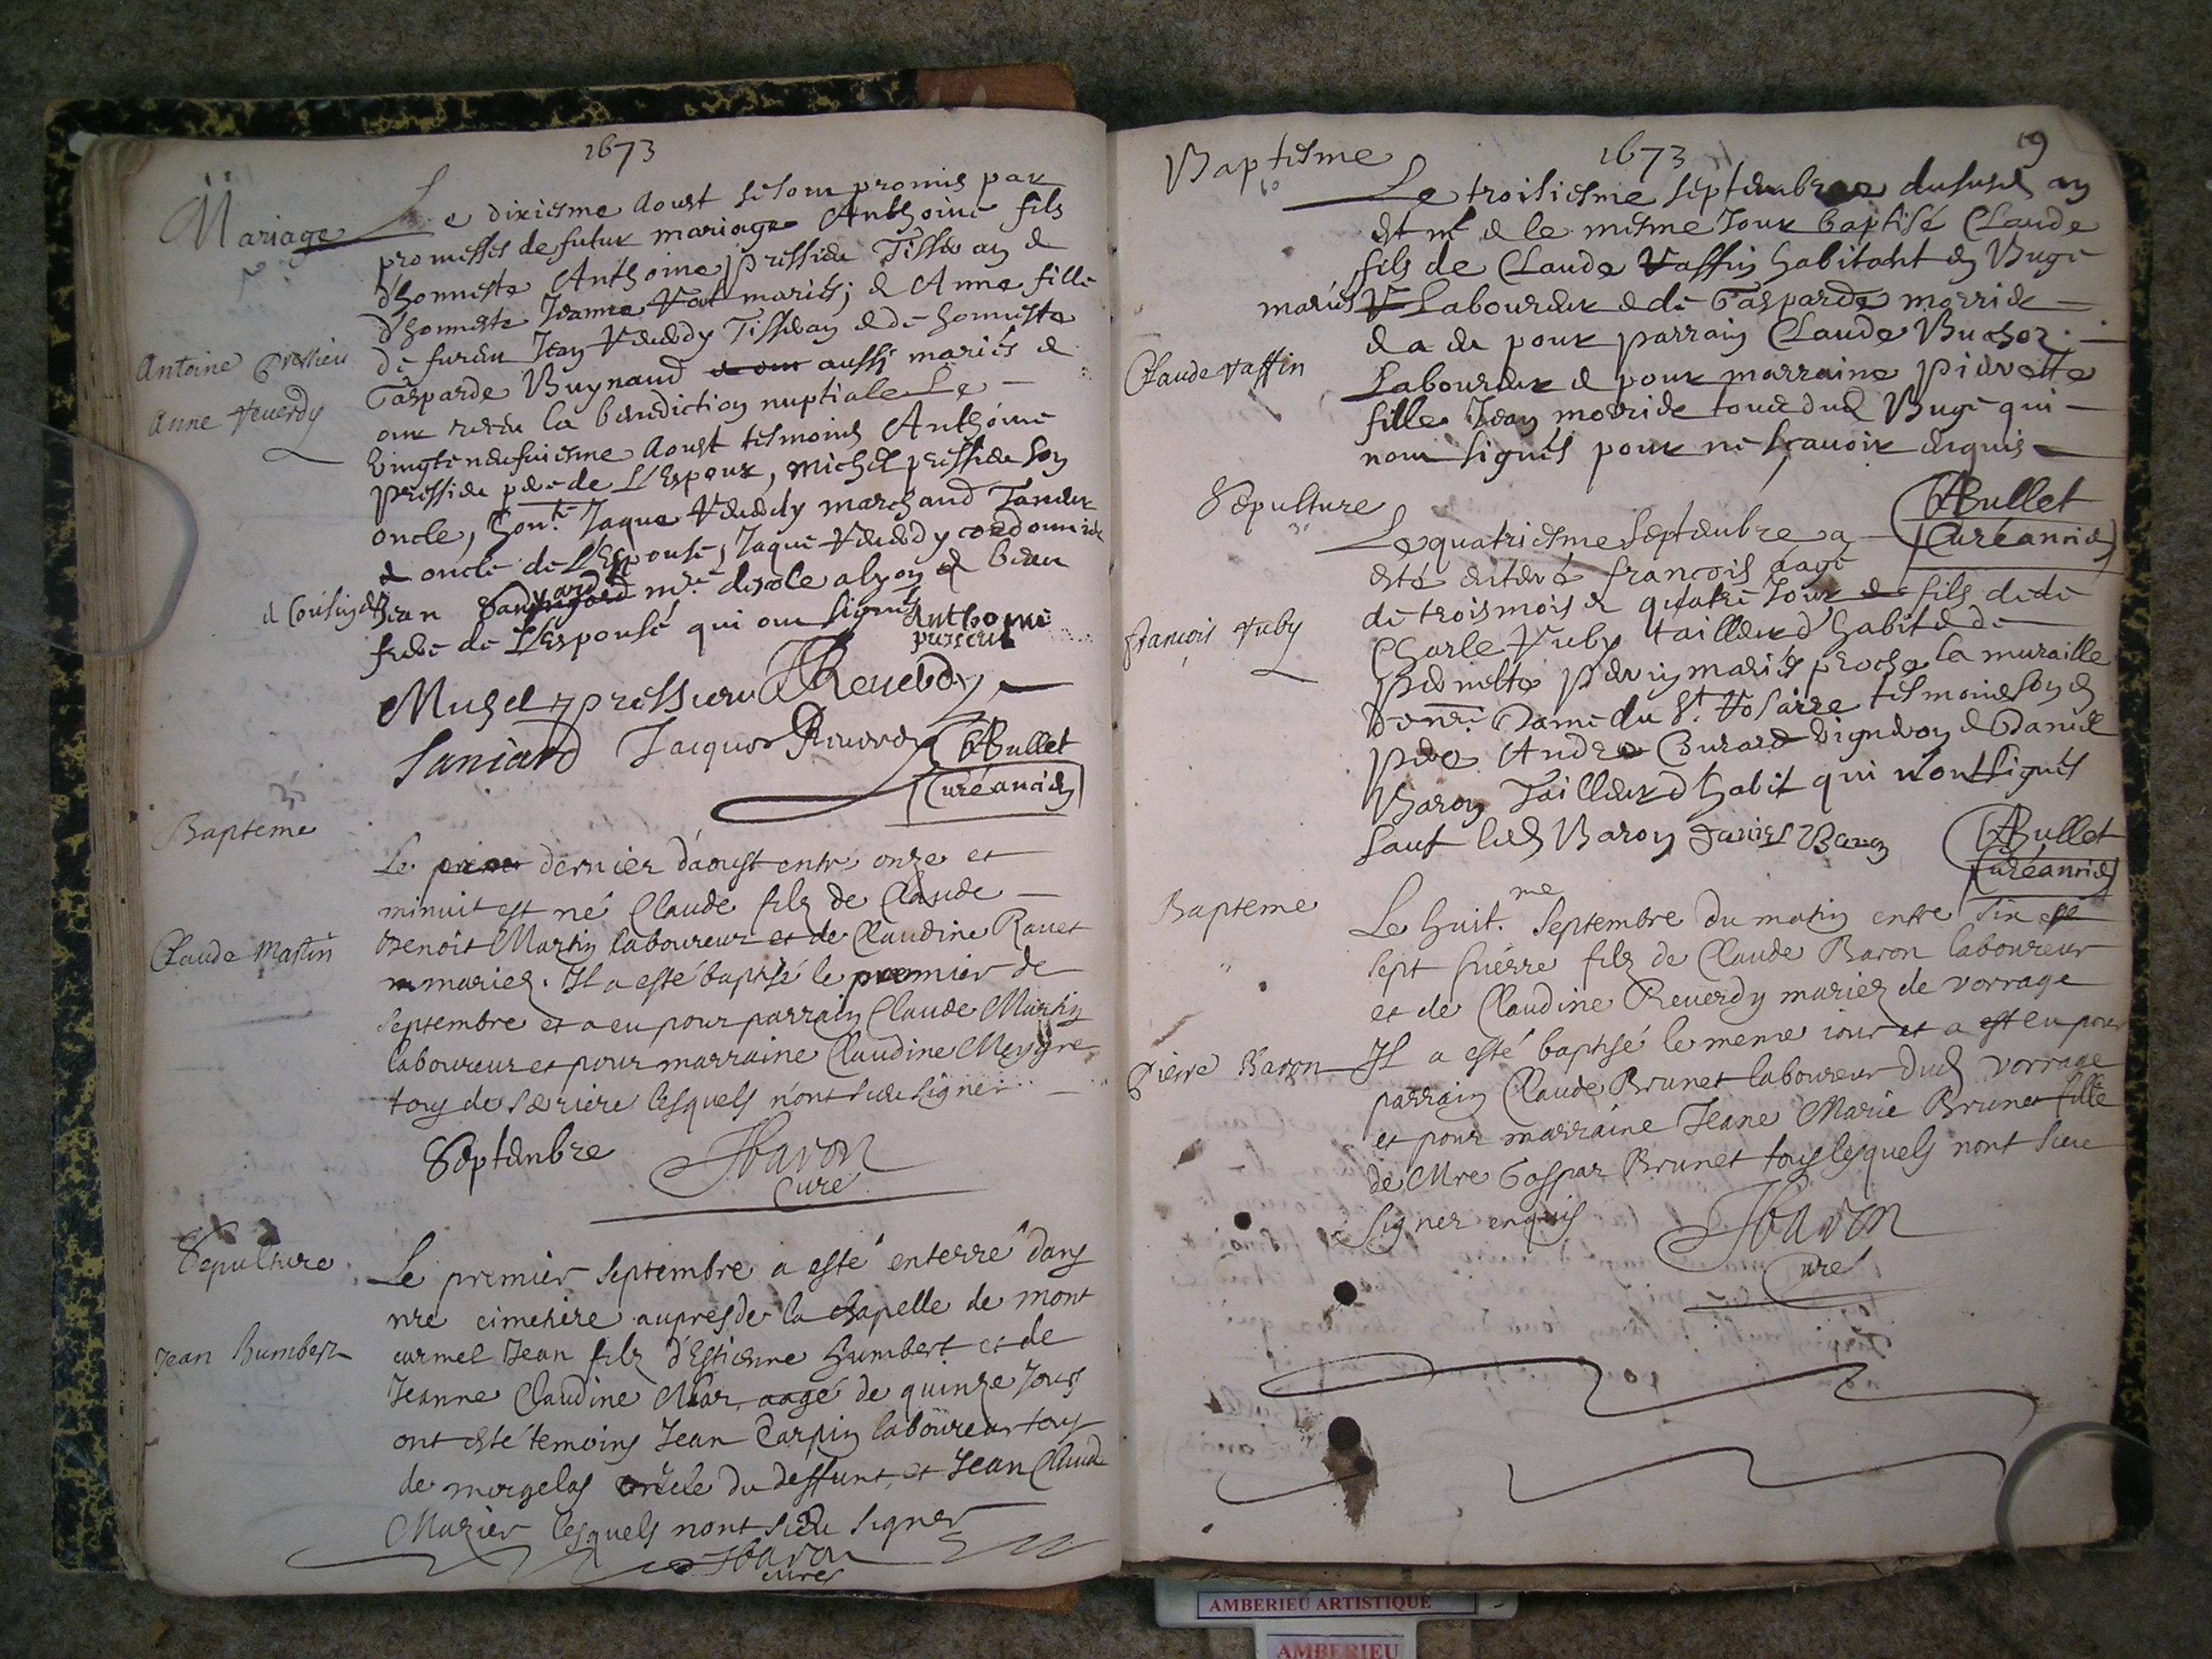 1673
Mariage
Le dixiesme Aoust se sont promis par
promesses de futur mariage Anthoine fils
d'honneste Anthoine pressieu Tisseran &
d'honneste Jeanne mariés; & Anne fille
de fureu Jean Reverdy Tisseran & de honneste
Gasparde Buynand aussi mariés &
Antoine Pressieu
Anne Reverdy
ont receu la benediction nuptiale Le
vingtneufuiesme Aoust tesmoins Anthoine
pressieu pere de L'Espoux, Michel pressieu son
oncle, hon.te Jaque Reverdy marchand Taneur
& oncle de L'Espouse, Jaque Reverdy cordonnier
& Cousin & Jean Sanyard m.re descole a lyon & beau
frere de L'Espouse qui ont signés
Anthoine
Michel pressieu Reuerdy
Saniard Jacques Reuerdy
Bullet
Curé ancien
Bapteme
Le dernier d'aoust entre onze et
minuit est né Claude filz de Claude
Benoit Martin laboureur et de Claudine Rauet
Claude Martin
mariez. Il a esté baptisé le premier de
septembre et a eu pour parrain Claude Martin
laboureur et pour marraine Claudine Meygre
tous de lesquels n'ont sceu signer
Septenbre
JBaron
Curé
Sepulture
Le premier septembre a esté enterré dans
nre cimetiere aupres de la chapelle de mont
Jean Humbert
carmel Jean filz d'Estienne Humbert et de
Jeanne Claudine aagé de quinze Jours
ont esté temoins Jean Carpin laboureur tous
de morgelas oncle du deffunt et Jean Claude
Mazier lesquels nont sceu signer
JBaron
curé
Baptesme
1673
19
Le troisiesme septenbre dususd an
est né & le mesme Jour baptisé Claude
fils de Claude Vaffin habitant en Bugé
mariés Laboureur & de Gasparde morride
& a eu pour parrain Claude Buchoz
Claude Vaffin
Laboureur & pour marraine Pierrette
fille Jean morride tous dud Bugé qui
nont signés pour ne scavoir enquis
Bullet
Curé ancien
Sepulture
Le quatriesme septenbre a
esté enterré francois aagé
de trois mois & quatre Jour fils de de
françois Vuby
Charle Vuby tailleur d'habit & de
Pernette Perrin mariés proche la muraille
Dame du St. Rosaire tesmoins son
pere Andre Curard vigneron & Daniel
Baron Tailleur d'habit qui n'ont signés
sauf led Baron Daniel Baron
Bullet
Curé ancien
Bapteme
Le huit.me septembre du matin entre six et
sept pierre filz de Claude Baron laboureur
et de Claudine Reuerdy mariez de vorrage
Pierre Baron
Il a esté baptisé le meme iour et a eu pour
parrain Claude Brunet laboureur dud vorrage
et pour marraine Jeane Marie Brunet fille
de Mre Gaspar Brunet tous lesquels nont sceu
signer enquis
JBaron
Curé
AMBERIEU ARTISTIQUE
AMBERIEU